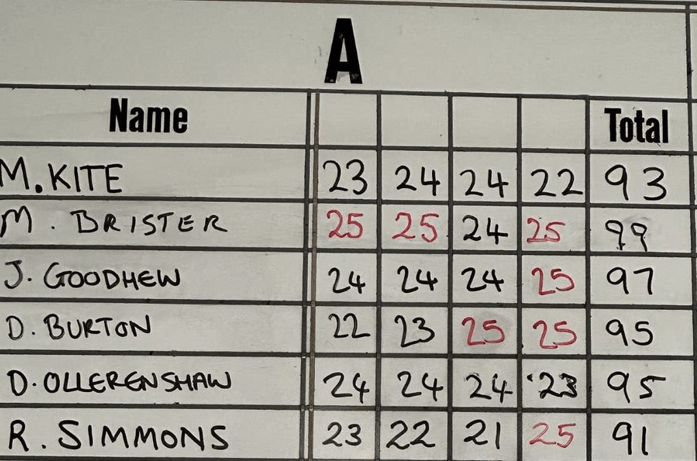 A
Name Total
M. KITE 23 24 24 22 93
M. BRISTER 25 25 24 25 99
J. GOODHEW 24 24 24 25 97
D. BURTON 22 23 25 25 95
D. OLLERENSHAW 24 24 24 23 95
R. SIMMONS 23 22 21 25 91